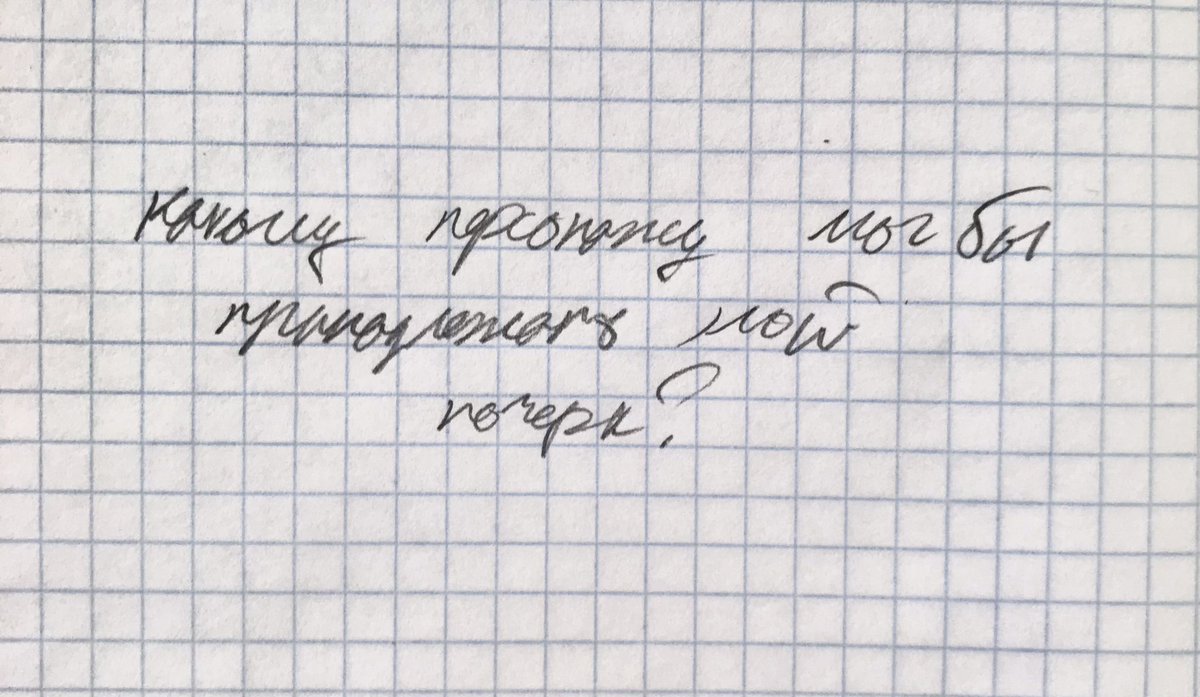 какому персонажу мог бы
принадлежать мой
почерк?